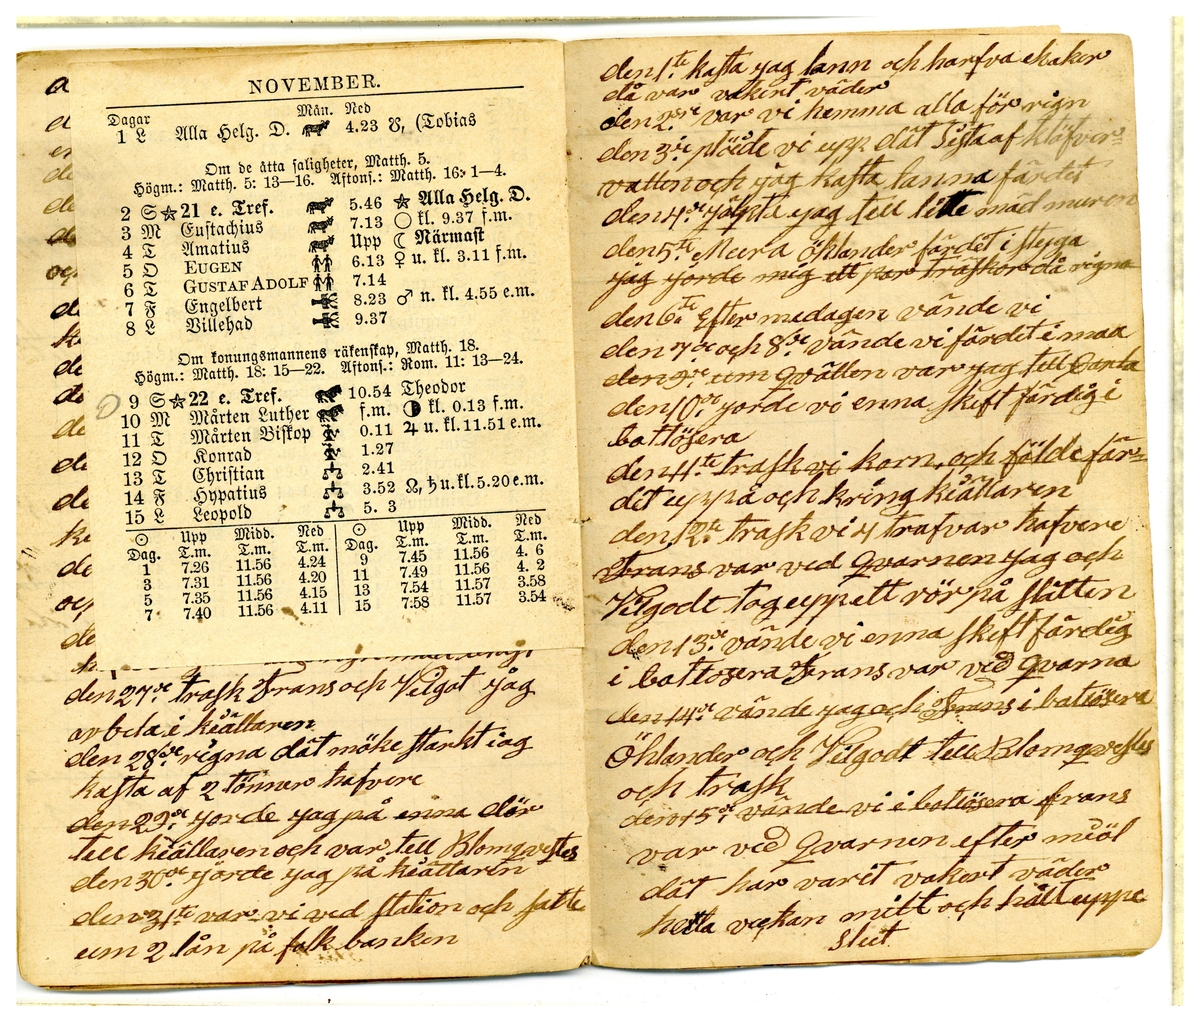 NOVEMBER.
Dagar Mån. Ned
1 L Alla Helg. D. 4.23 ☋, (Tobias
Om de åtta saligheter, Matth. 5.
Högm.: Matth. 5: 13—16. Aftons.: Matth. 16: 1—4.
2 S ☆ 21 e. Tref. 5.46 ☆ Alla Helg. D.
3 M Eustachius 7.13 ○ kl. 9.37 f.m.
4 T Amatius Upp ☾ Närmast
5 O EUGEN 6.13 ♀ u. kl. 3.11 f.m.
6 T GUSTAF ADOLF 7.14
7 F Engelbert 8.23 ♂ n. kl. 4.55 e.m.
8 L Villehad 9.37
Om konungsmannens räkenskap, Matth. 18.
Högm.: Matth. 18: 15—22. Aftons.: Rom. 11: 13—24.
9 S ☆ 22 e. Tref. 10.54 Theodor
10 M Mårten Luther f.m. ◑ kl. 0.13 f.m.
11 T Mårten Biskop 0.11 ♃ u. kl. 11.51 e.m.
12 O Konrad 1.27
13 T Christian 2.41
14 F Hypatius 3.52 ☊, ♄ u. kl. 5.20 e.m.
15 L Leopold 5. 3
☉ Upp Midd. Ned ☉ Upp Midd. Ned
Dag. T.m. T.m. T.m. Dag. T.m. T.m. T.m.
1 7.26 11.56 4.24 9 7.45 11.56 4. 6
3 7.31 11.56 4.20 11 7.49 11.56 4. 2
5 7.35 11.56 4.15 13 7.54 11.57 3.58
7 7.40 11.56 4.11 15 7.58 11.57 3.54
den 27de trask Frans och Vilgot jag
arbeta i kiällaren
den 28de rigna dät möke starkt iag
kasta af 2 tönner hafvere
den 29de jorde jag på enna dör
tell kiällaren och var tell Blomqvestes
den 30de jörde jag på kiällaren
den 31te var vi ved station och satte
um 2 lån på folkbanken
den 1te kasta jag lann och harfva ekaker
då var vakert väder
den 2dre var vi hemma alla för rign
den 3die plöide vi upp dät sista af klöfver=
vallen och jag kasta lanna färdet
den 4de jälpte jag tell lite mäd muren
den 5te Mura Öhlander färdet i stuga
jag jorde mig ett par träskor då rigna
den 6te Efter medagen vände vi
den 7de och 8de vände vi färdet i maa
den 9de um qvällen var jag tell
den 10de jorde vi enna skift färdig i
batlösera
den 11te trask vi korn och földe fär=
det uppå och kring kiällaren
den 12te trask vi 4 trafvar hafvere
Frans var ved qvarnen jag och
Vilgodt tog upp ett rör på slätten
den 13de vände vi enna skift färdig
i batlosera Frans var ved qvarna
den 14de vände jag och Frans i batlösera
Öhlander och Vilgodt tell Blomqvestes
och trask
den 15de vände vi i batlösera frans
var ved qvarnen efter miöl
dät har varit vakert väder
hela veckan mitt och hällt uppe
slut